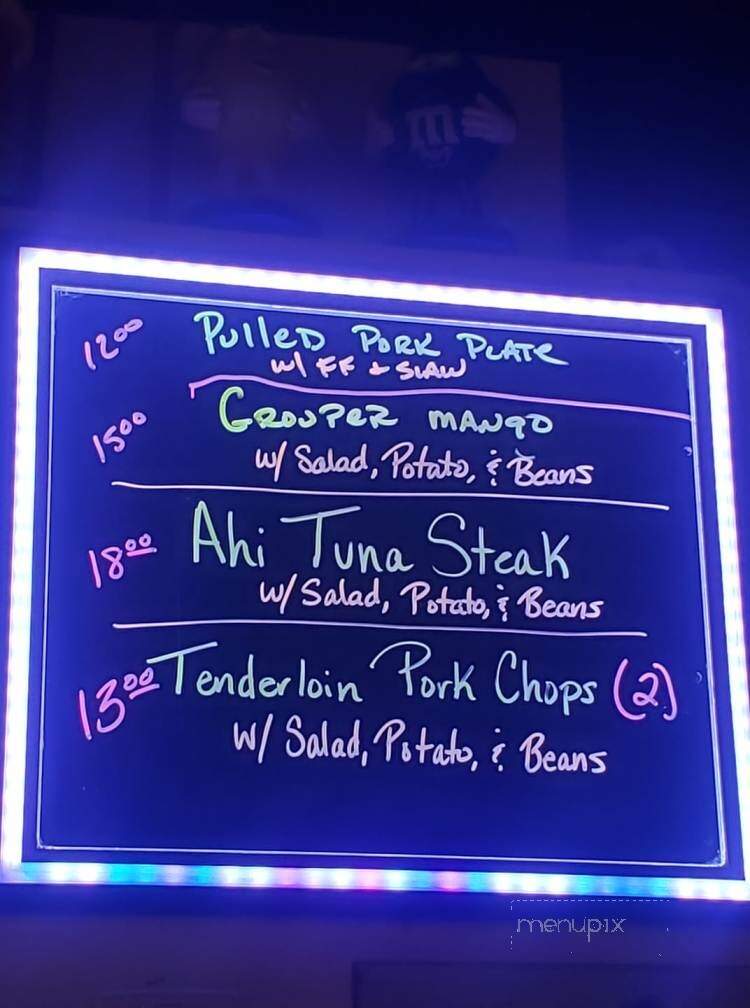 12.00 PULLED PORK PLATE
w/ FF & SLAW
15.00 GROUPER MANGO
w/ Salad, Potato, & Beans
18.00 Ahi Tuna Steak
w/ Salad, Potato, & Beans
13.00 Tenderloin Pork Chops (2)
w/ Salad, Potato, & Beans
menupix